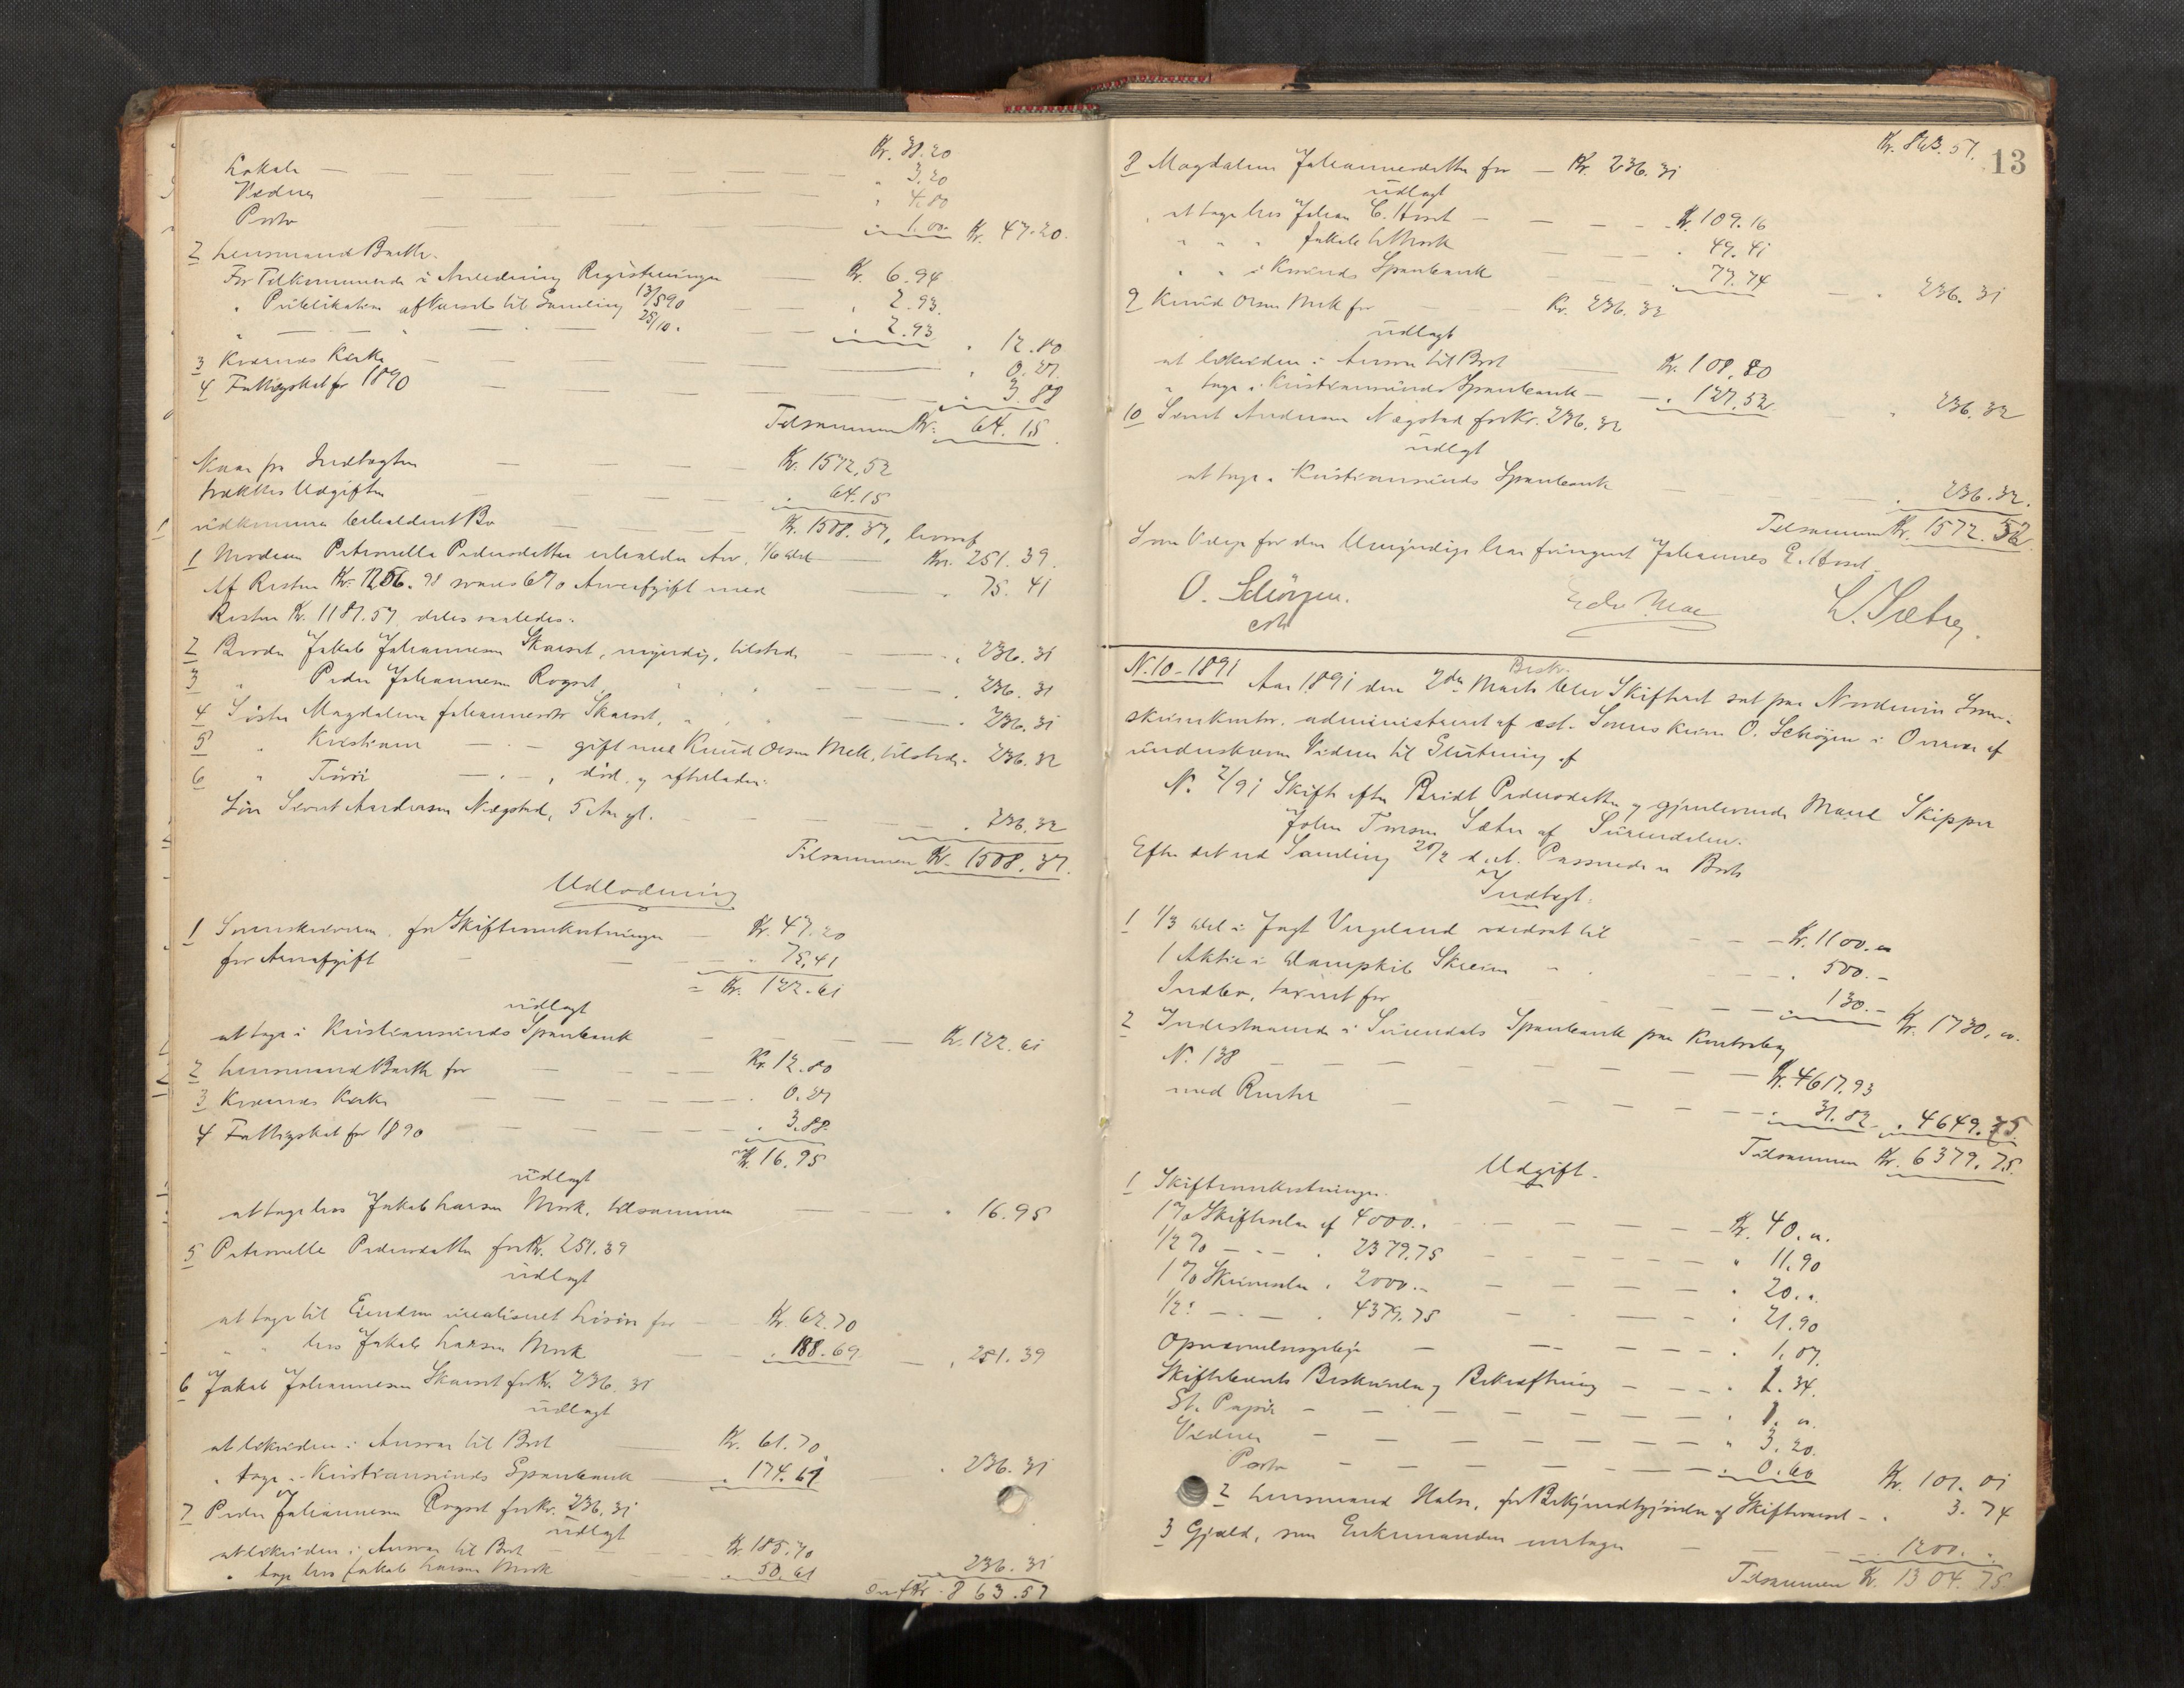 Kr. 38.20
Lokale — " 3.20
Vidner — " 4.80
Porto — " 1.00 Kr. 47.20.
2 Lensmand Barth.
For Tilkommende i Anledning Registreringen — Kr. 6.94
" Publikation af Varsel til Samling 13/5 90 — " 2.93.
" — " — 25/10 " — " 2.93 " 12.80
3 Kvernes Kirke — " 0.27.
4 Fattigskat for 1890 — " 3.88
Tilsammen Kr. 64.15
Naar fra Indtægten — Kr. 1572.52
trækkes Udgiften — " 64.15
udkommer beholdent Bo — Kr. 1508.37, hvoraf
1 Moderen Petronelle Pedersdatter erholder Arv, 1/6 Del — Kr. 251.39.
Af Resten Kr. 1256.98 svares 6% Arveafgift med — " 75.41
Resten Kr. 1181.57 deles saaledes:
2 Broder Jakob Johannesen Skarset, myndig, tilstede — " 236.31
3 " Peder Johannesen Rogset " " — " 236.31
4 Søster Magdalena Johannesdtr Skarset, " " — " 236.31
5 " Kristiane — " — gift med Knud Olsen Mek, tilstede " 236.32
6 " Turi — " —, død og efterlader:
Søn Sivert Andersen Nægstad, 5 Aar gl. — " 236.32
Tilsammen Kr. 1508.37.
Udlodning
1 Sorenskriveren for Skifteomkostninger — Kr. 47.20
for Arveafgift — " 75.41
= Kr. 122.61
udlagt
at tage i Kristiansunds Sparebank — Kr. 122.61
2 Lensmand Barth for — Kr. 12.80
3 Kvernes Kirke — " 0.27
4 Fattigskat for 1890 — " 3.88
Kr. 16.95
udlagt
at tage hos Jakob Larsen Mork, tilsammen — " 16.95
5 Petronelle Pedersdatter for Kr. 251.39
udlagt
at tage til Eiendom urealiseret Løsøre for — Kr. 62.70
" " hos Jakob Larsen Mork " 188.69 — " 251.39
6 Jakob Johannesen Skarset for Kr. 236.31
udlagt
at likvidere i Ansvar til Boet Kr. 61.70
" tage i Kristiansunds Sparebank — " 174.61 " 236.31
7 Peder Johannesen Rogset for Kr. 236.31
udlagt
at likvidere i Ansvar til Boet — Kr. 185.70
" tage hos Jakob Larsen Mork " 50.61 236.31
Kr. 863.57
Kr. 863.57.
13
8 Magdalena Johannesdatter for — Kr. 236.31
udlagt
at tage hos Johan C. Hoset — Kr. 109.16
" " " Jakob L. Mork " 49.41
" " i Krsunds Sparebank " 77.74 — " 236.31
9 Knud Olsen Mek for — Kr. 236.32
udlagt
at likvidere i Ansvar til Boet — Kr. 108.80
" tage i Kristiansunds Sparebank — " 127.52 " 236.32
10 Sivert Andersen Nægstad for Kr. 236.32
udlagt
at tage i Kristiansunds Sparebank — " 236.32.
Tilsammen Kr. 1572.52
Som Værge for den Umyndige har fungeret Johannes E. Hoset.
O. Schøyen.
cst
L. Sæter.
N. 10 – 1891 Aar 1891 den 2den Marts blev Skifteret sat paa Nordmøre Soren-
skriverkontor, administreret af cst. Sorenskriver O. Schøyen i Overvær af
underskrevne Vidner til Slutning af
N. 2/91 Skifte efter Beridt Pedersdatter og gjenlevende Mand Skipper
John Toresen Sæter af Surendalen.
Efter det ved Samling 20/2 d. A. Passerede er Boets
Indtægt.
1 1/3 Del i Jagt Vergeland vurderet til — Kr. 1100.00
1 Aktie i Dampskib Skreien — " 500.–
Indbo, taxeret for — " 130.– Kr. 1730.00.
2 Indestaaende i Surendals Sparebank paa Kontrabog
N. 138 — Kr. 4617.93
med Renter — " 31.82 " 4649.75
Tilsammen Kr. 6379.75.
Udgift.
1 Skifteomkostninger.
1% Skiftesalær af 4000.. — Kr. 40.00.
1/2% — " — " 2379.75 — " 11.90
1% Skriversalær " 2000.– — " 20.00.
1/2 " — " — " 4379.75 — " 21.90
Opnævnelsesgebyr — " 1.07.
Skiftebrevets Beskrivelse og Bekræftning — " 1.34.
St. Papir — " 1.00.
Vidner — " 3.20.
Porto — " 0.60 Kr. 101.01
2 Lensmand Halse, for Bekjendtgjørelse af Skiftevarsel — " 3.74
3 Gjæld, som Enkemanden overtager — 1200. "
Tilsammen Kr. 1304.75